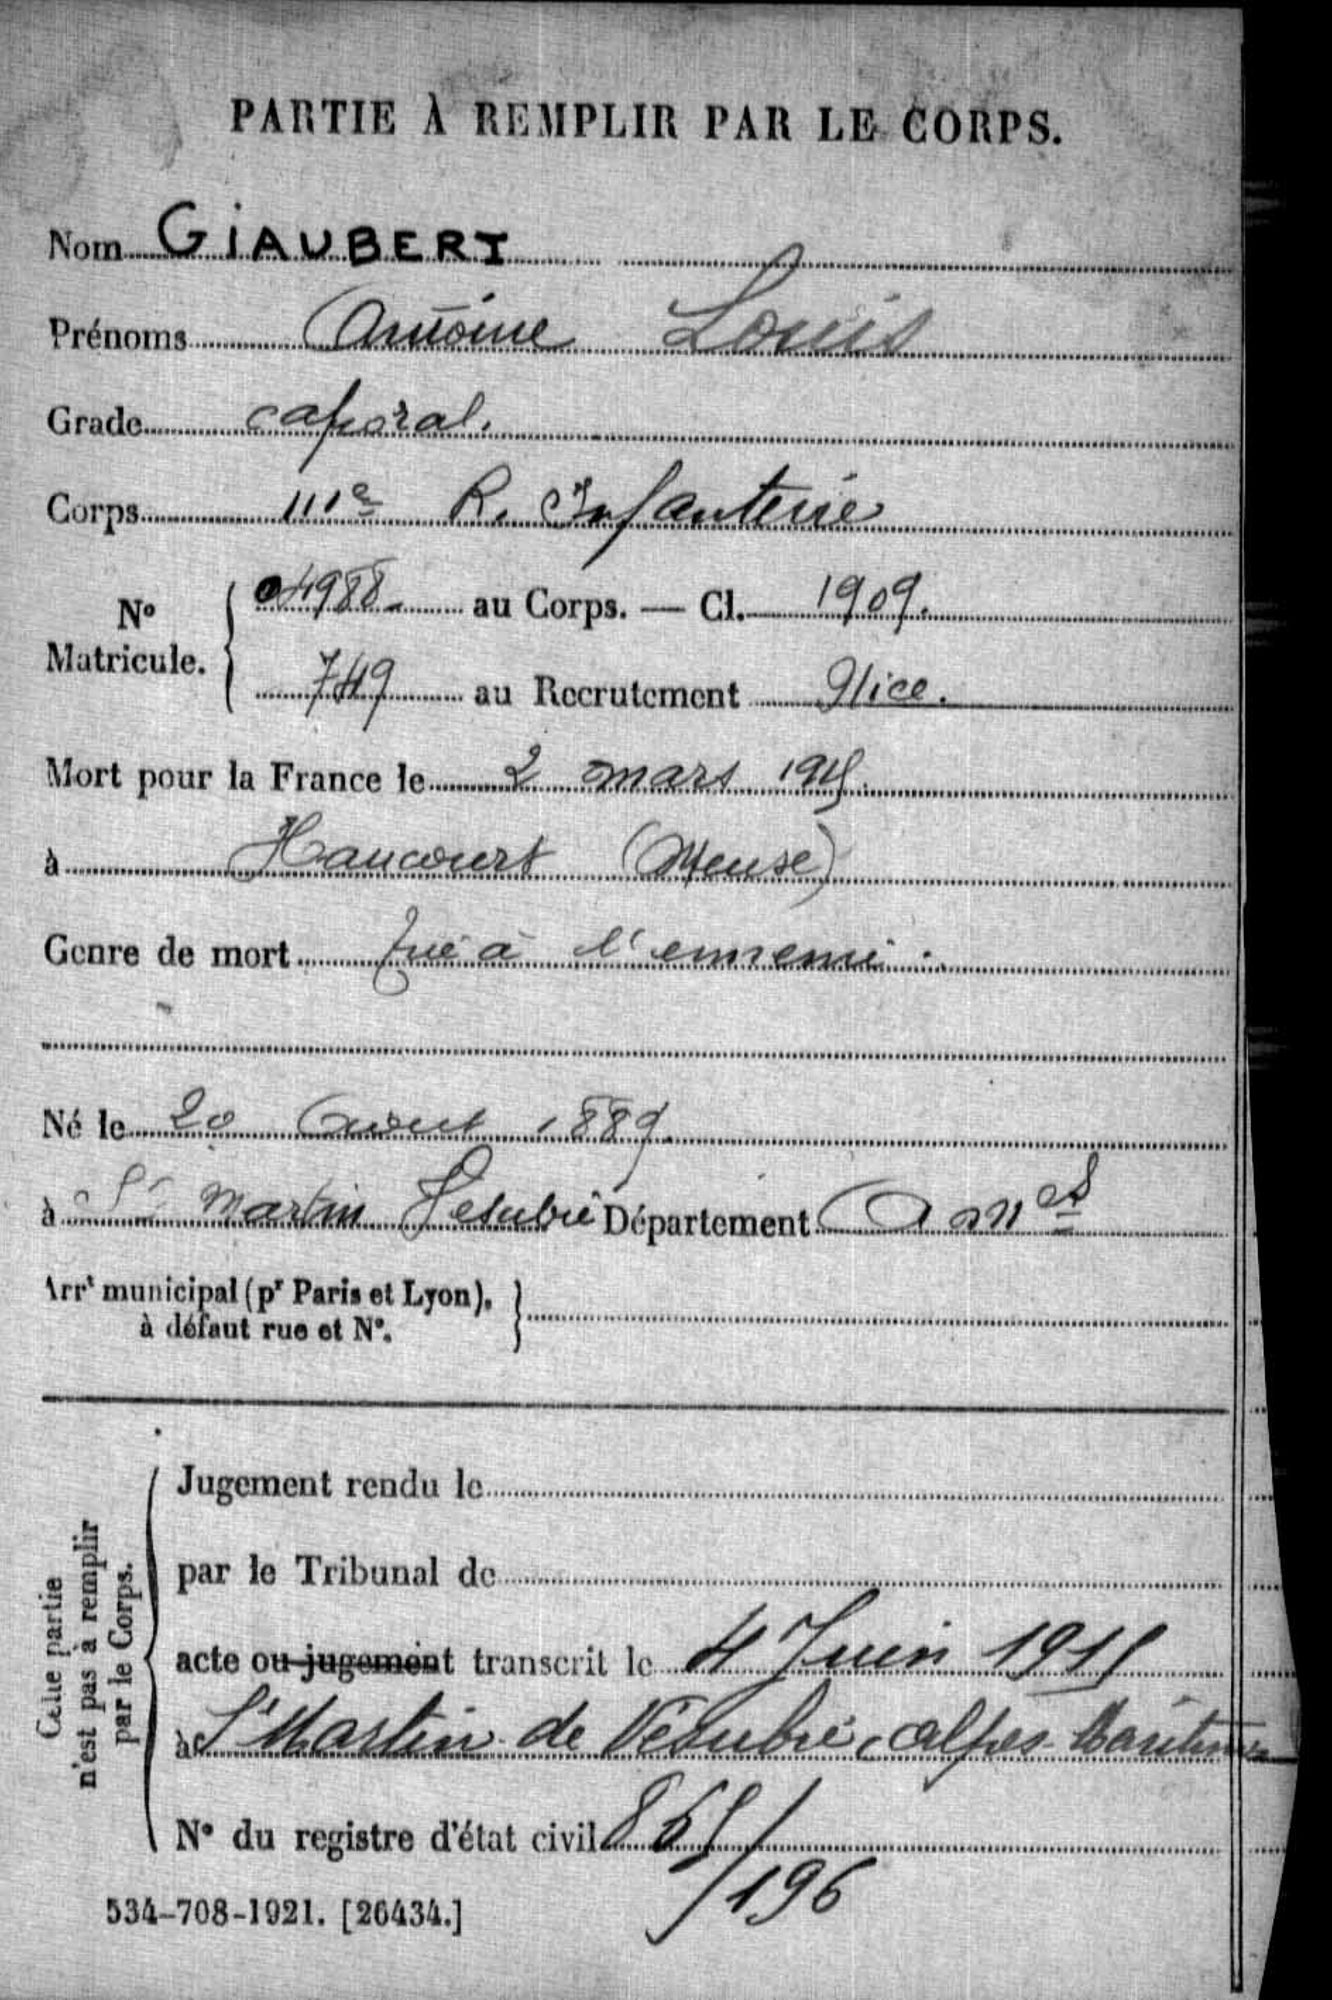 PARTIE À REMPLIR PAR LE CORPS.
Nom GIAUBERT
Prénoms Antoine Louis
Grade caporal.
Corps 111e R. Infanterie
No Matricule. 04988 au Corps. — Cl. 1909.
749 au Recrutement Nice.
Mort pour la France le 2 mars 1915.
à Haucourt (Meuse)
Genre de mort tué à l'ennemi.
Né le 20 Aout 1889
à St Martin Vesubie Département A Mes
Arrt municipal (pr Paris et Lyon), à défaut rue et No.
Cette partie n'est pas à remplir par le Corps.
Jugement rendu le
par le Tribunal de
acte ou jugement transcrit le 4 Juin 1915
à St Martin de Vésubie, Alpes Maritimes
No du registre d'état civil
196
534-708-1921. [26434.]